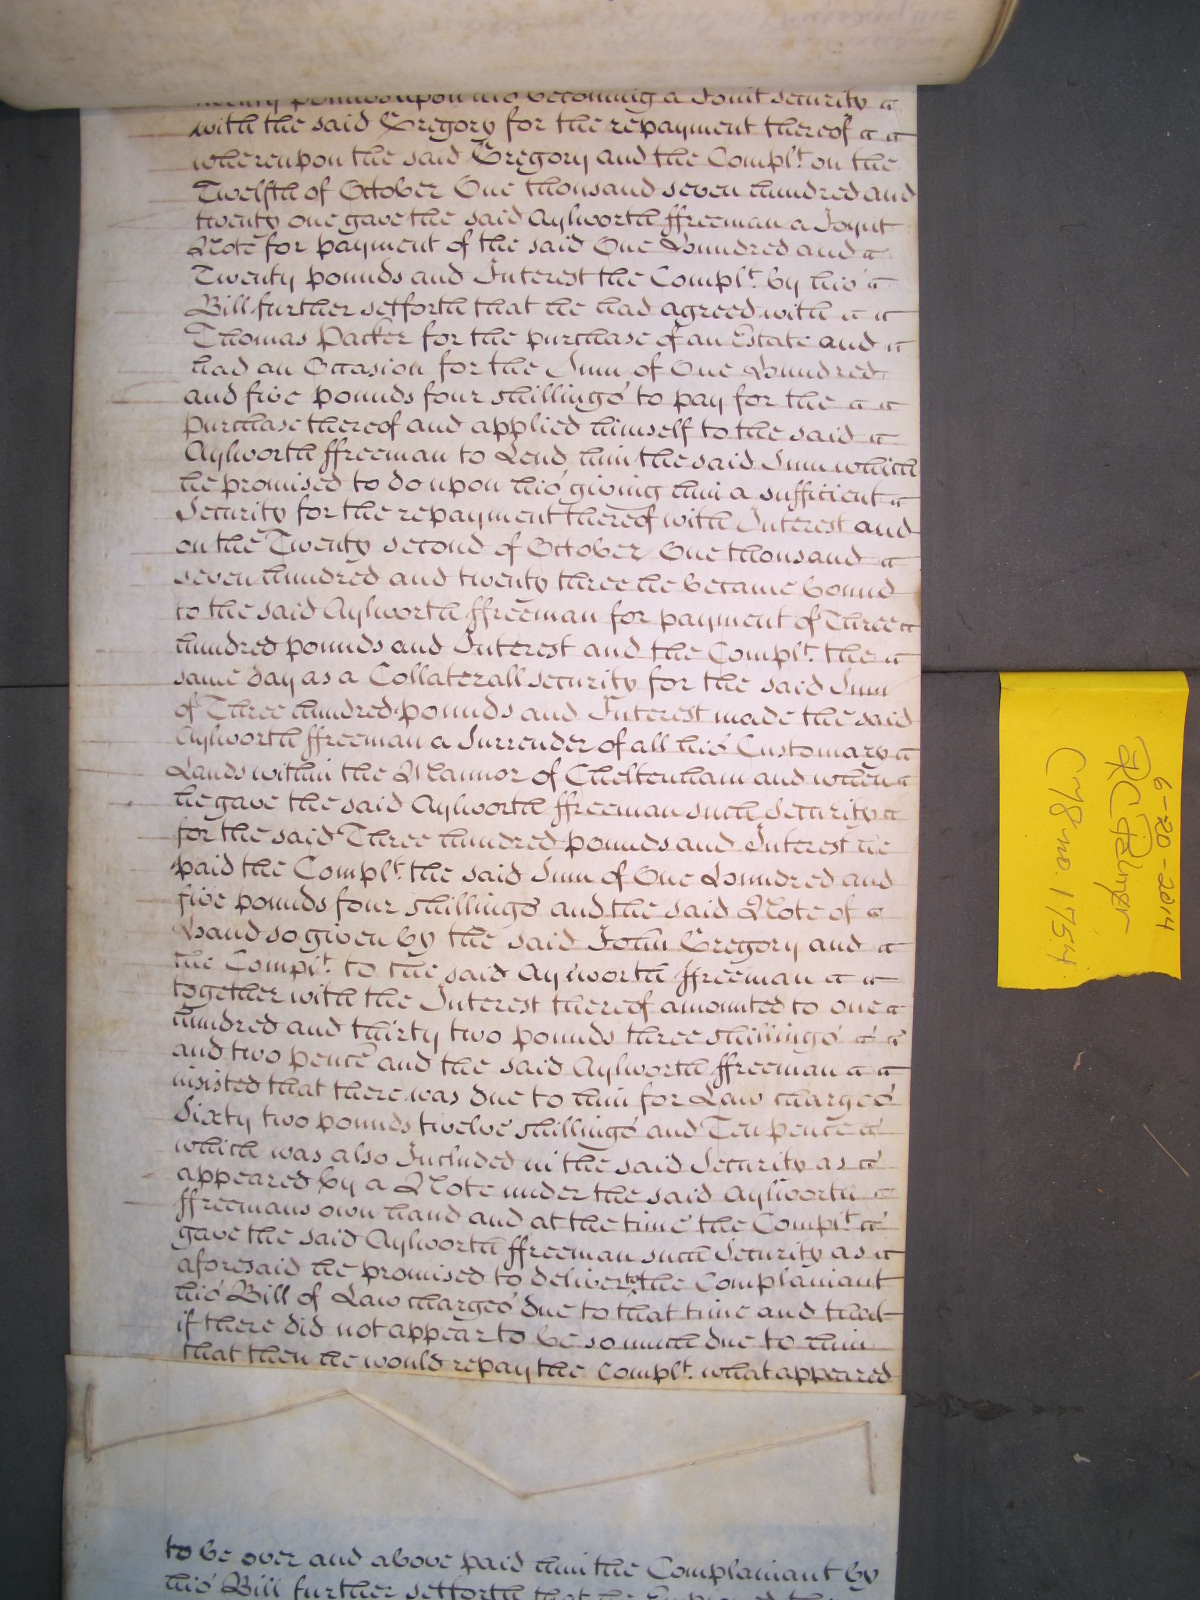 twenty pounds upon his becoming a Joint Security
with the said Gregory for the repayment thereof
whereupon the said Gregory and the Complt. on the
Twelfth of October One thousand seven hundred and
twenty one gave the said Aylworth ffreeman a Joynt
Note for payment of the said One Hundred and
Twenty pounds and Interest the Complt. by his
Bill further setforth that he had agreed with
Thomas Packer for the purchase of an Estate and
had an Occasion for the Sum of One Hundred
and five pounds four shillings to pay for the
purchase thereof and applied himself to the said
Aylworth ffreeman to Lend him the said Sum which
he promised to do upon his giving him a sufficient
Security for the repayment thereof with Interest and
on the Twenty second of October One thousand
seven hundred and twenty three he became bound
to the said Aylworth ffreeman for payment of Three
hundred pounds and Interest and the Complt. the
same day as a Collaterall security for the said Sum
of Three hundred pounds and Interest made the said
Aylworth ffreeman a Surrender of all his Customary
Lands within the Mannor of Cheltenham and when
he gave the said Aylworth ffreeman such Security
for the said Three hundred pounds and Interest he
paid the Complt. the said Sum of One Hundred and
five pounds four shillings and the said Note of
Hand so given by the said John Gregory and
the Complt. to the said Aylworth ffreeman
together with the Interest thereof amounted to one
hundred and thirty two pounds three shillings
and two pence and the said Aylworth ffreeman
insisted that there was due to him for Law charges
Sixty two pounds twelve shillings and Ten pence
which was also Included in the said Security as
appeared by a Note under the said Aylworth
ffreemans own hand and at the time the Complt.
gave the said Aylworth ffreeman such Security as
aforesaid he promised to deliver to the Complainant
his Bill of Law charges due to that time and that
if there did not appear to be so much due to him
that then he would repay the Complt. what appeared
to be over and above paid him the Complainant by
his Bill further setforth that he
6-20-2014
C78 no. 1754